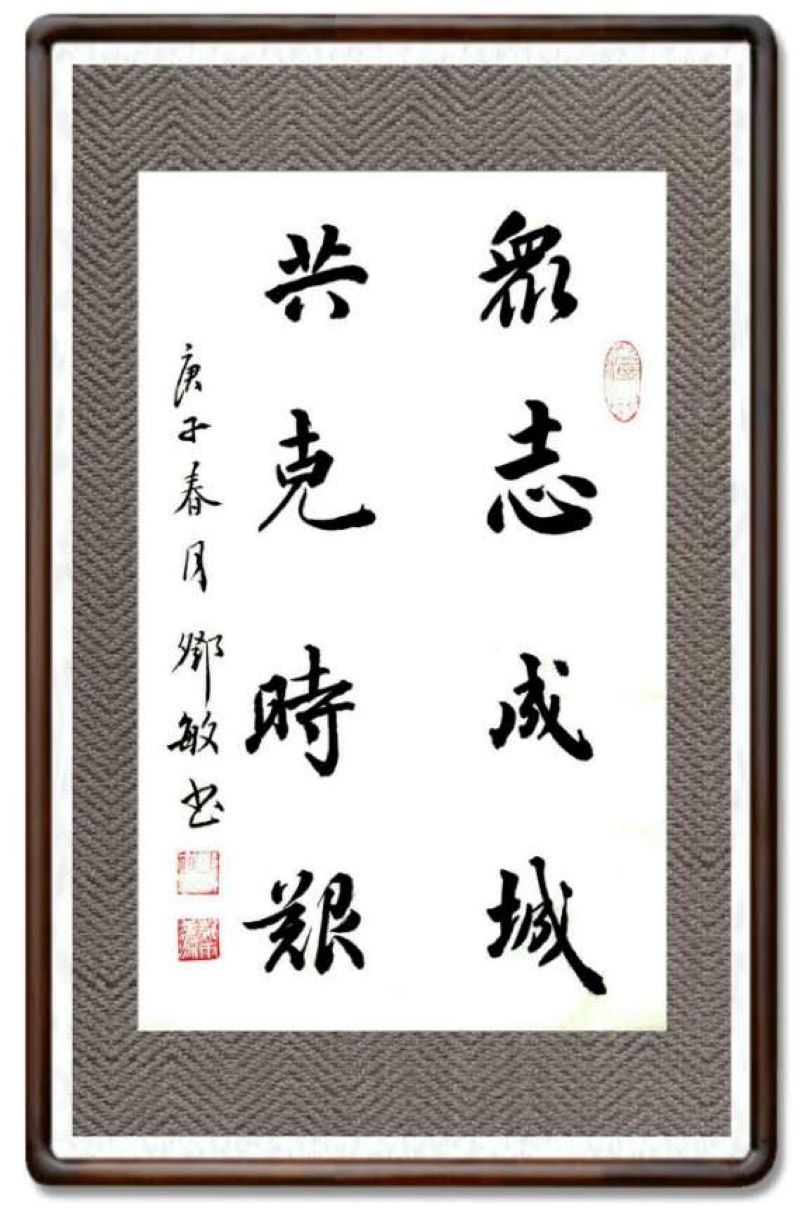 眾志成城
共克時艱
庚子春月鄧敏书